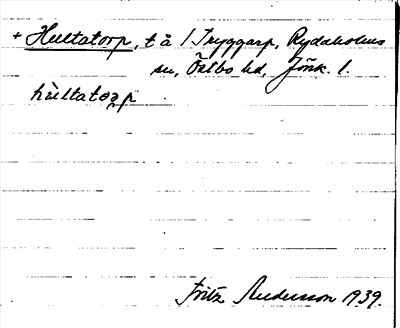 + Hultatorp, t å 1 Tryggarp, Rydaholms
sn, Östbo hd, Jönk. l.
hùltatoṛp
Fritz Andersson 1939.